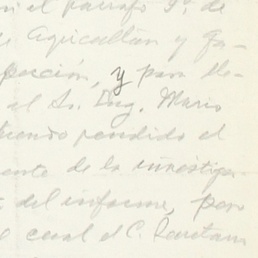 n el párrafo 9º. de
Agricultura y Ga-
posición, y para lle-
el Sr. Ing. Mario
rendido el
ente de la investiga-
del informe, para
el cual el C. Secretario